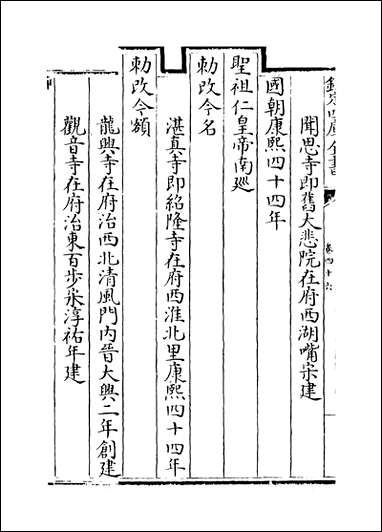 欽定四庫全書
卷四十六
聞思寺即舊大悲院在府西湖嘴宋建
國朝康熙四十四年
聖祖仁皇帝南廵
勅改今名
湛真寺即紹隆寺在府西淮北里康熙四十四年
勅改今額
龍興寺在府治西北清風門内晉大興二年創建
觀音寺在府治東百歩宋淳祐年建